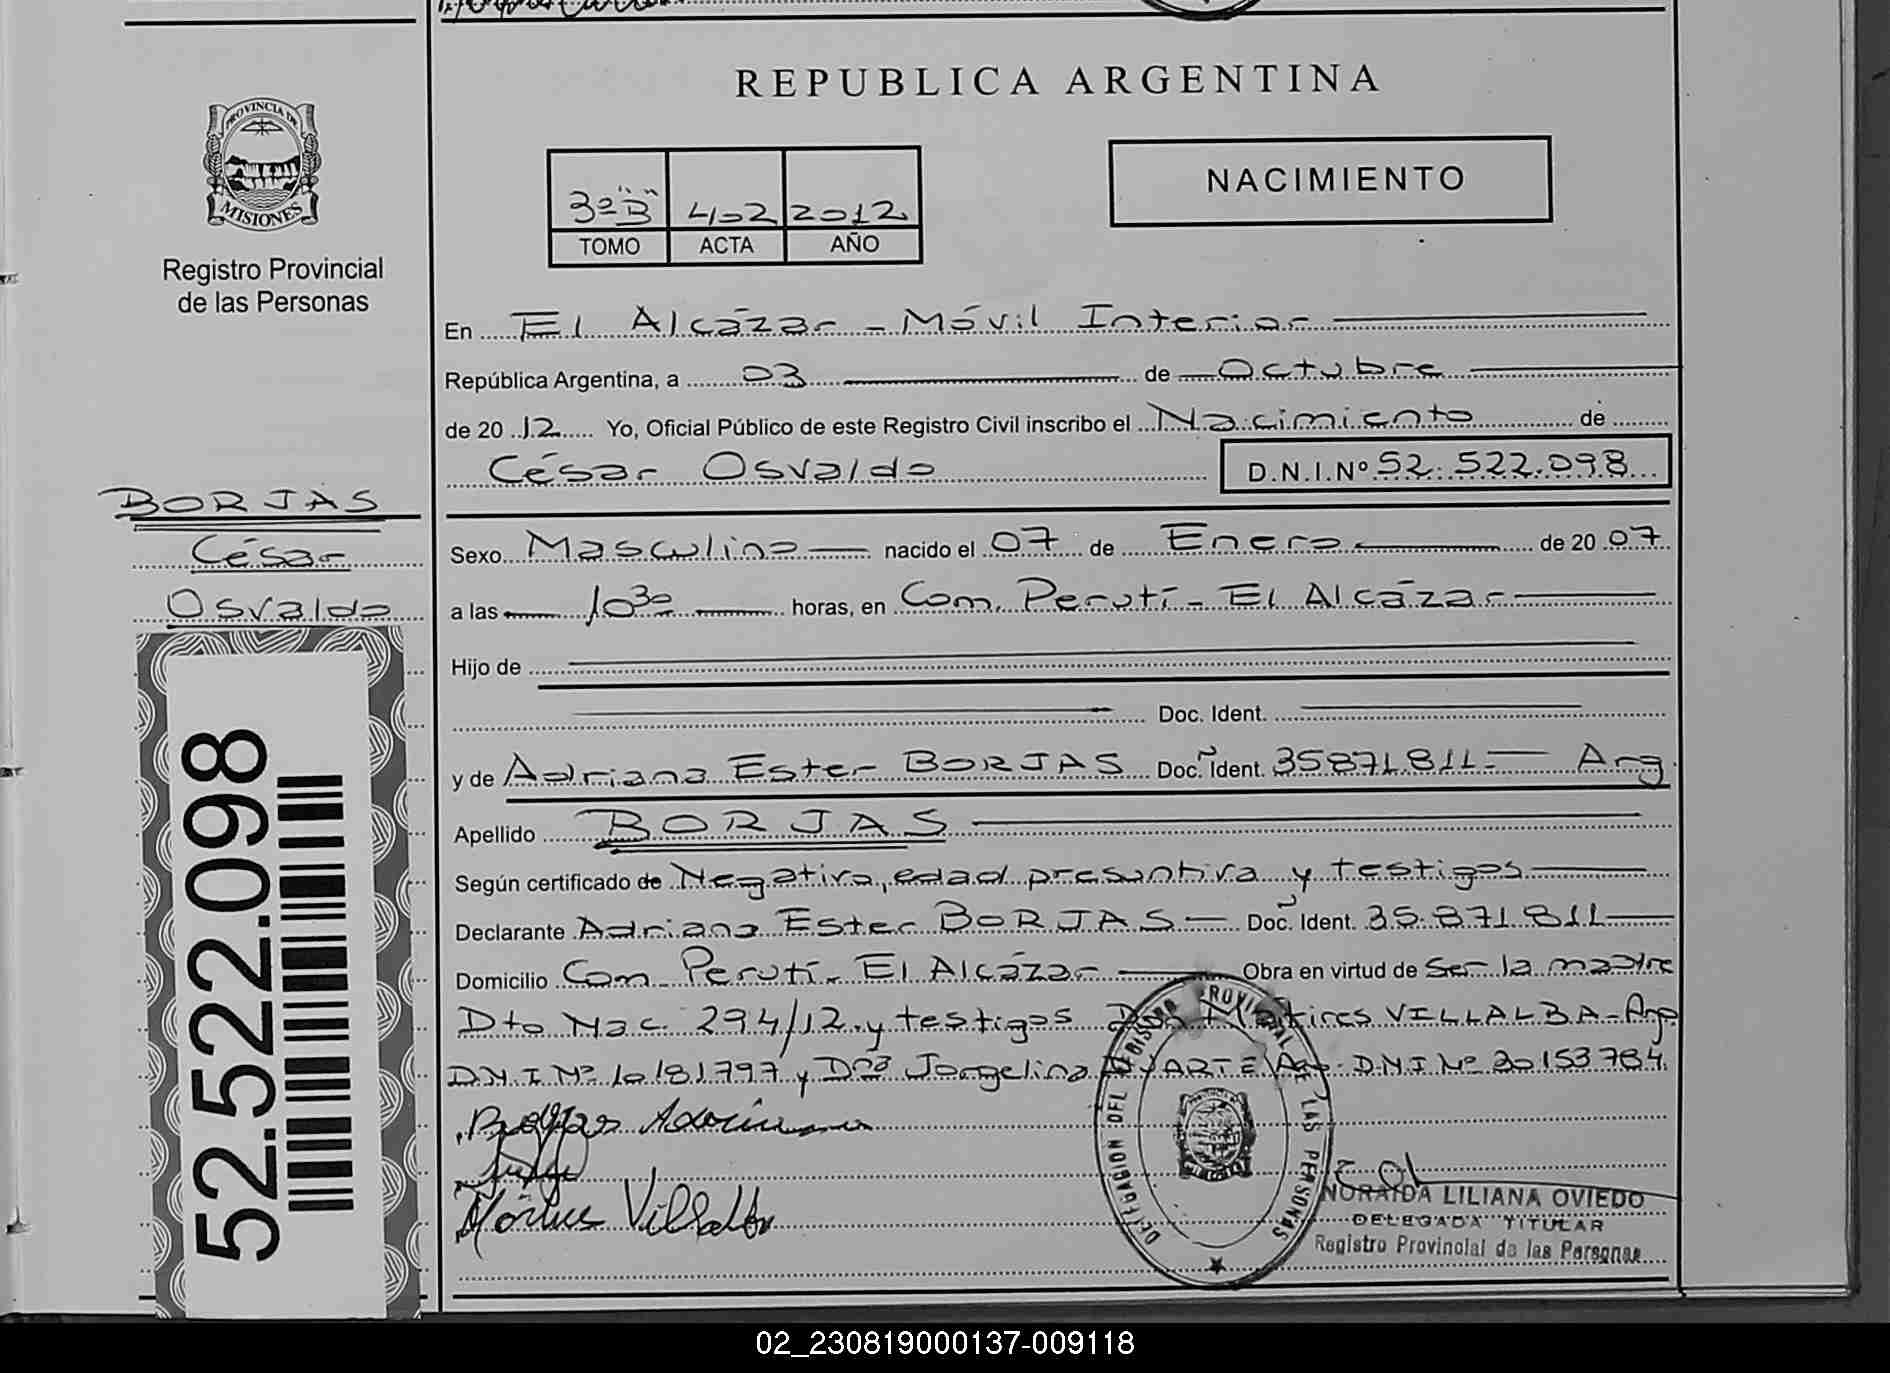 REPUBLICA ARGENTINA
PROVINCIA DE
MISIONES
Registro Provincial
de las Personas
3º "B" 402 2012
TOMO ACTA AÑO
NACIMIENTO
En El Alcázar - Móvil Interior
República Argentina, a 03 de Octubre
de 2012 Yo, Oficial Público de este Registro Civil inscribo el Nacimiento de
César Osvaldo D.N.I.Nº 52.522.098
BORJAS
César
Osvaldo
52.522.098
Sexo Masculino nacido el 07 de Enero de 2007
a las 10 30 horas, en Com. Perutí - El Alcázar
Hijo de
Doc. Ident.
y de Adriana Ester BORJAS Doc. Ident. 35871811 - Arg
Apellido BORJAS
Según certificado de Negativa, edad presuntiva y testigos
Declarante Adriana Ester BORJAS - Doc. Ident. 35.871811
Domicilio Com. Perutí - El Alcázar Obra en virtud de ser la madre
Dto Nac. 294/12. y testigos VILLALBA - Arg
D.N.I Nº 10181797 y Drª Jorgelina DUARTE Arg - D.N.I Nº 30153784.
Borjas Adriana
Villalba
DELEGACION DEL REGISTRO PROVINCIAL DE LAS PERSONAS
NORAIDA LILIANA OVIEDO
DELEGADA TITULAR
Registro Provincial de las Personas
02_230819000137-009118